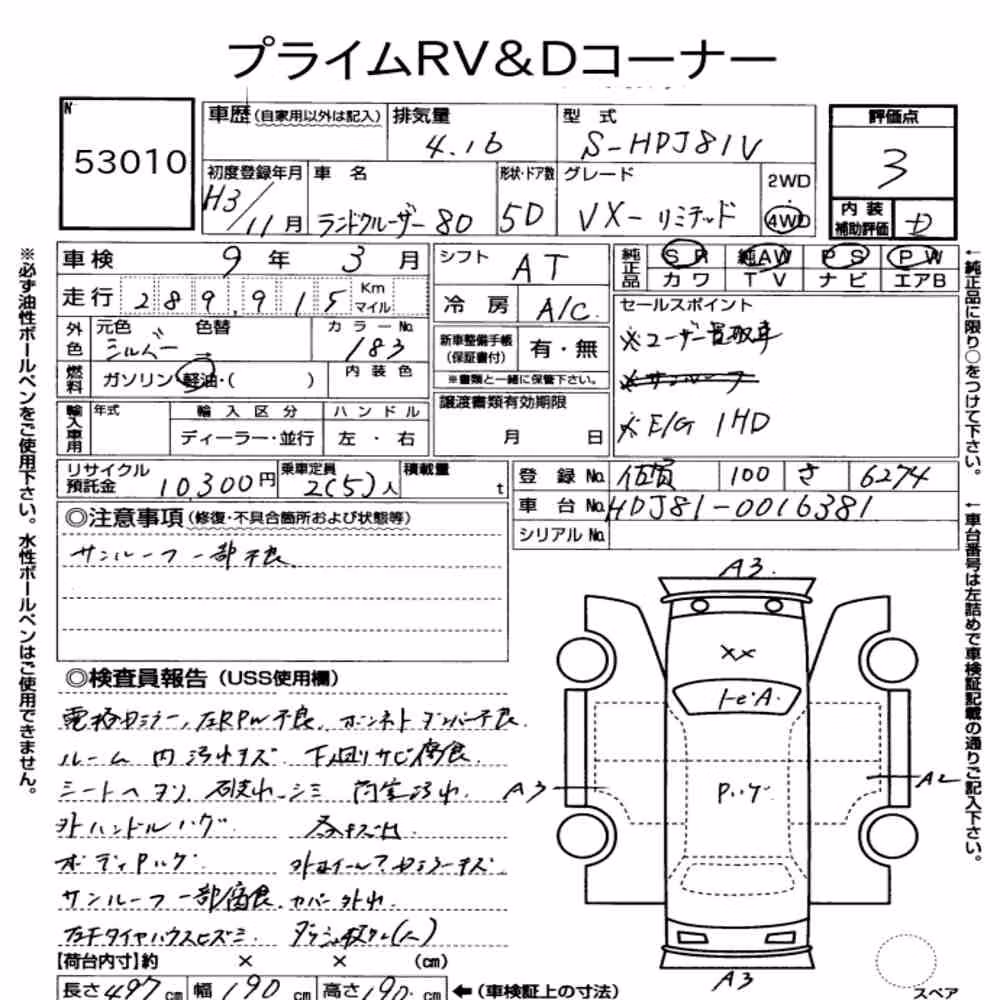 プライムRV&Dコーナー
N
53010
車歴(自家用以外は記入)
排気量
4.16
型式
S-HDJ81V
評価点
3
初度登録年月
H3/11月
車名
ランドクルーザー80
形状・ドア数
5D
グレード
VX-リミテッド
2WD
4WD
内装
補助評価
D
車検 9年3月
シフト AT
純正品
SR 純AW PS PW
カワ TV ナビ エアB
走行 289,915 Km マイル
冷房 A/C
セールスポイント
※ユーザー買取車
※サンルーフ
※E/G 1HD
外色
元色 シルバー
色替 →
カラーNo. 183
新車整備手帳
(保証書付)
有・無
※書類と一緒に保管下さい。
燃料
ガソリン・軽油・( )
内装色
譲渡書類有効期限
月 日
輸入車用
年式
輸入区分
ハンドル
ディーラー・並行
左・右
リサイクル
預託金
10,300円
乗車定員
2(5)人
積載量
t
登録No. 佐賀 100 さ 6274
車台No. HDJ81-0016381
シリアルNo.
◎注意事項(修復・不具合箇所および状態等)
サンルーフ一部不良
◎検査員報告(USS使用欄)
電格ミラー、左RPW不良、ボンネットダンパー不良.
ルーム内汚れキズ 下廻りサビ腐食.
シートヘタリ、破れ、シミ 荷室汚れ.
外ハンドルハゲ.
ボディハゲ.
サンルーフ一部腐食.カバー外れ.
左Fタイヤハウスヒズミ.
【荷台内寸】約 × × (cm)
長さ497cm 幅190cm 高さ190cm ←(車検証上の寸法)
A3.
XX
A3
A2
A3
スペア
※必ず油性ボールペンをご使用下さい。水性ボールペンはご使用できません。
←純正品に限り○をつけて下さい。
←車台番号は左詰めで車検証記載の通りご記入下さい。